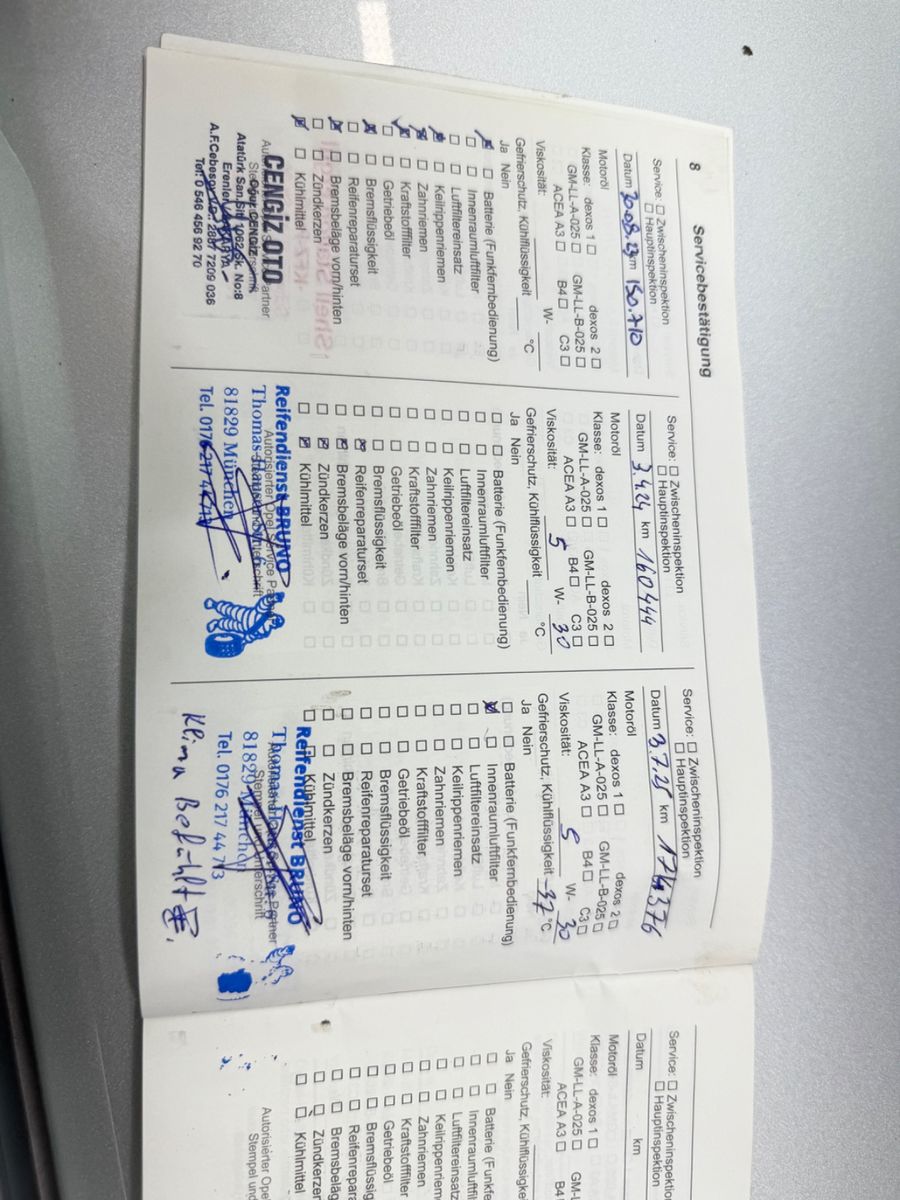 8
Servicebestätigung
Service: ☐ Zwischeninspektion
☐ Hauptinspektion
Datum 30.08.23 km 150.710
Motoröl
Klasse: dexos 1 ☐ dexos 2 ☐
GM-LL-A-025 ☐ GM-LL-B-025 ☐
ACEA A3 ☐ B4 ☐ C3 ☐
Viskosität: W-
Gefrierschutz, Kühlflüssigkeit °C
Ja Nein
Batterie (Funkfernbedienung)
Innenraumluftfilter
Luftfiltereinsatz
Keilrippenriemen
Zahnriemen
Kraftstofffilter
Getriebeöl
Bremsflüssigkeit
Reifenreparaturset
Bremsbeläge vorn/hinten
Zündkerzen
Kühlmittel
CENGİZ OTO
Oğuz CENGİZ
Atatürk San. Sit. 1062. Sk. No:8
A.F.Cebesoy V.D.: 2887 7209 036
Tel: 0 546 456 92 70
Service: ☐ Zwischeninspektion
☐ Hauptinspektion
Datum 3.4.24 km 160444
Motoröl
Klasse: dexos 1 ☐ dexos 2 ☐
GM-LL-A-025 ☐ GM-LL-B-025 ☐
ACEA A3 ☐ B4 ☐ C3 ☐
Viskosität: 5 W- 30
Gefrierschutz, Kühlflüssigkeit °C
Ja Nein
Batterie (Funkfernbedienung)
Innenraumluftfilter
Luftfiltereinsatz
Keilrippenriemen
Zahnriemen
Kraftstofffilter
Getriebeöl
Bremsflüssigkeit
Reifenreparaturset
Bremsbeläge vorn/hinten
Zündkerzen
Kühlmittel
Autorisierter Opel Service Partner
Reifendienst BRUNO
Thomas
81829 München
Tel. 0176 217 44 713
Service: ☐ Zwischeninspektion
☐ Hauptinspektion
Datum 3.7.25 km 174376
Motoröl
Klasse: dexos 1 ☐ dexos 2 ☐
GM-LL-A-025 ☐ GM-LL-B-025 ☐
ACEA A3 ☐ B4 ☐ C3 ☐
Viskosität: 5 W- 30
Gefrierschutz, Kühlflüssigkeit -37 °C
Ja Nein
Batterie (Funkfernbedienung)
Innenraumluftfilter
Luftfiltereinsatz
Keilrippenriemen
Zahnriemen
Kraftstofffilter
Getriebeöl
Bremsflüssigkeit
Reifenreparaturset
Bremsbeläge vorn/hinten
Zündkerzen
Kühlmittel
Reifendienst BRUNO
Thomas
81829 München
Tel. 0176 217 44 713
Klima Befühlt
Service: ☐ Zwischeninspektion
☐ Hauptinspektion
Datum km
Motoröl
Klasse: dexos 1 ☐
GM-LL-A-025 ☐ GM
ACEA A3 ☐ B4
Viskosität:
Gefrierschutz, Kühlflüssigkeit
Ja Nein
Batterie (Funkfe
Innenraumluftfilte
Luftfiltereinsatz
Keilrippenriemen
Zahnriemen
Kraftstofffilter
Getriebeöl
Bremsflüssig
Reifenrepara
Bremsbeläg
Zündkerzen
Kühlmittel
Autorisierter Opel
Stempel und